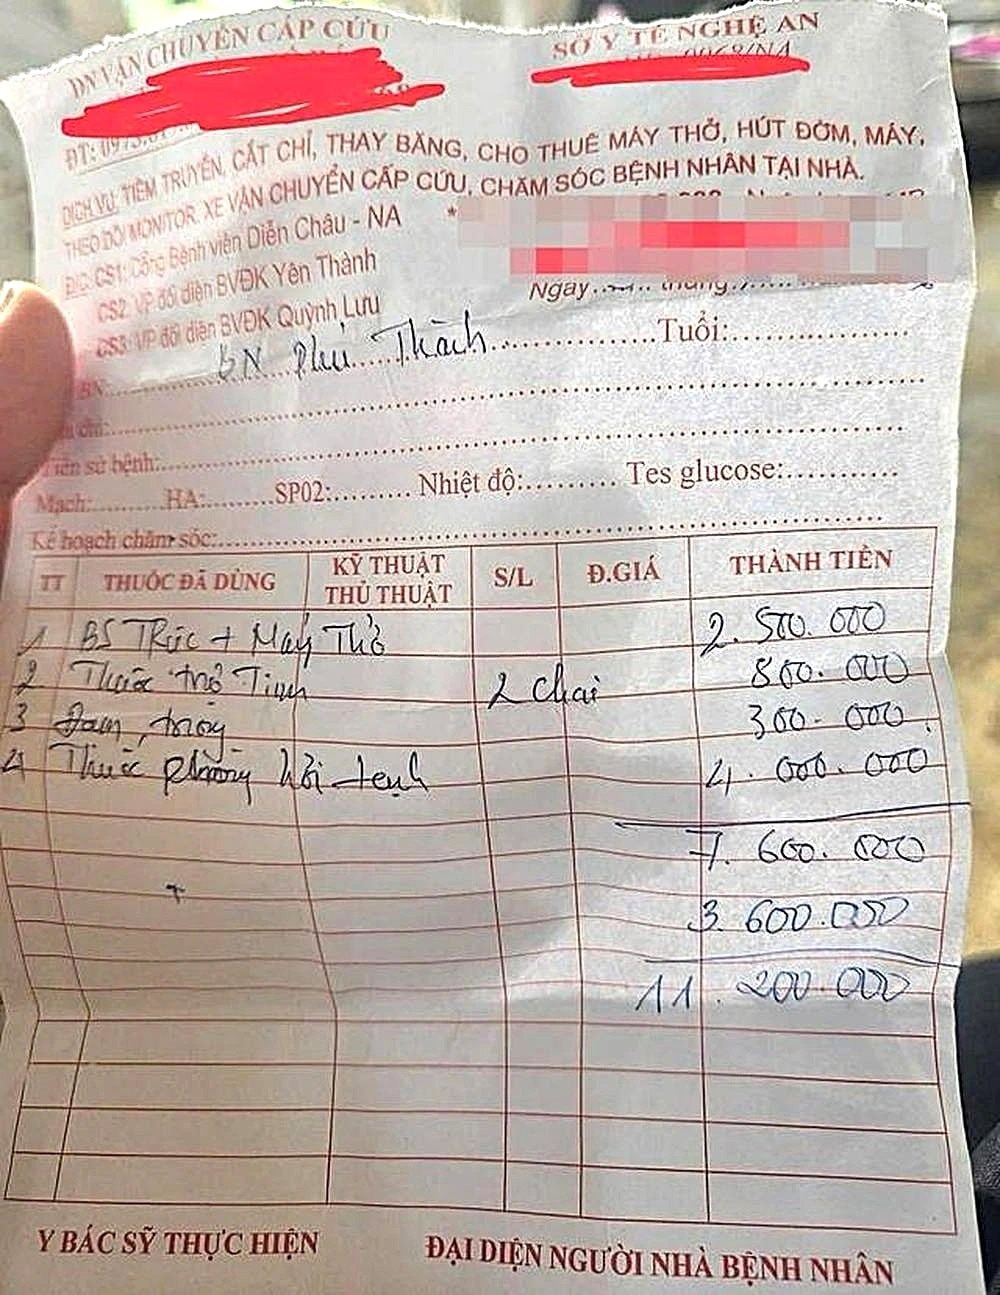 DN VẬN CHUYỂN CẤP CỨU
SỞ Y TẾ NGHỆ AN
ĐT:
DỊCH VỤ: TIÊM TRUYỀN, CẮT CHỈ, THAY BĂNG, CHO THUÊ MÁY THỞ, HÚT ĐỜM, MÁY,
THEO DÕI MONITOR. XE VẬN CHUYỂN CẤP CỨU, CHĂM SÓC BỆNH NHÂN TẠI NHÀ.
Đ/C: CS1: Cổng Bệnh viện Diễn Châu - NA *
CS2: VP đối diện BVĐK Yên Thành
CS3: VP đối diện BVĐK Quỳnh Lưu
Ngày..... tháng.....
BN:.....BN Phú Thành.....Tuổi:.....
chỉ:.....
Tiền sử bệnh:.....
Mạch:.....HA:.....SP02:.....Nhiệt độ:.....Tes glucose:.....
Kế hoạch chăm sóc:.....
TT THUỐC ĐÃ DÙNG KỸ THUẬT THỦ THUẬT S/L Đ.GIÁ THÀNH TIỀN
1 BS Trực + Máy Thở 2.500.000
2 Thuốc trợ Tim 2 chai 800.000
3 Đạm, 300.000
4 Thuốc phòng hồi tỉnh 4.000.000
7.600.000
3.600.000
11.200.000
Y BÁC SỸ THỰC HIỆN
ĐẠI DIỆN NGƯỜI NHÀ BỆNH NHÂN